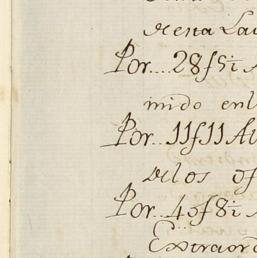 de esta La
Por... 28 f 5 i A
mido en l
Por... 11 f 11 A
de los of
Por... 40 f 8 i
Extraor